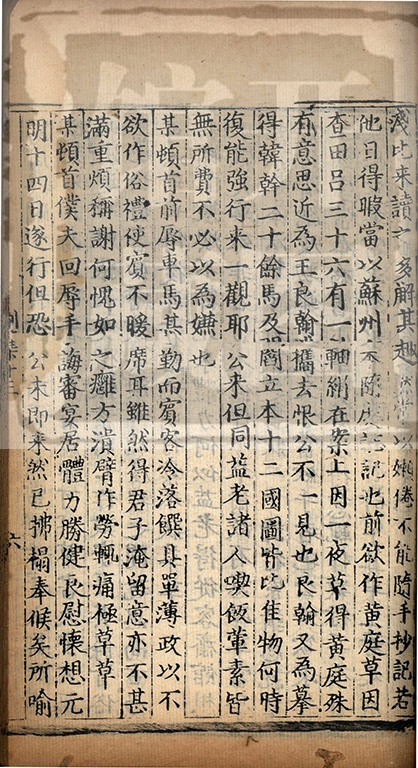 淺比来讀之多解其趣以嬾倦不能隨手抄記若
他日得暇當以蘇州不隨也前欲作黃庭草因
查田吕三十六有一軸綳在案上因一夜草得黃庭殊
有意思近為王良翰攜去恨公不一見也良翰又為摹
得韓幹二十餘馬及閻立本十二國圖皆比佳物何時
復能強行来一觀耶公来但同益老諸人喫飯葷素皆
無所費不必以為嫌也
某頓首前辱車馬甚勤而賓客冷落饌具單薄政以不
欲作俗禮使賓不暖席耳雖然得君子淹留意亦不甚
滿重煩稱謝何愧如之癰方潰臂作勞輒痛極草草
某頓首僕夫回辱手誨審宴居體力勝健良慰懷想元
明十四日遂行但恐公未即来然已拂榻奉候矣所喻
六